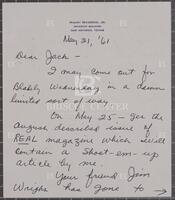 May 21, '61
Dear Jack -
I may come out for
Blakly Wednesday in a damn
limited sort of way.
On May 25 - get the
August dearded issue of
REAL magazine which will
contain a shoot-em-up
article by me.
Your friend Jim
Wright has gone to →